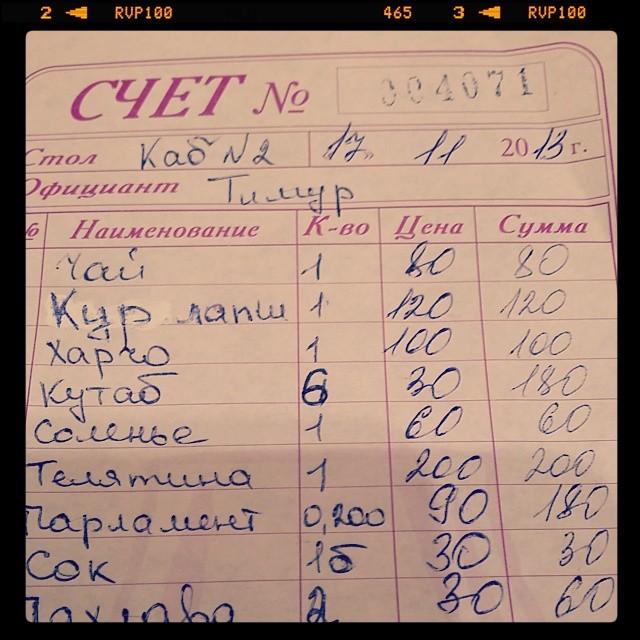 2 RVP100 465 3 RVP100
СЧЕТ № 004071
Стол Каб N2 17 11 2013 г.
Официант Тимур
№ Наименование К-во Цена Сумма
Чай 1 80 80
Кур лапш 1 120 120
Харчо 1 100 100
Кутаб 6 30 180
Соленье 1 60 60
Телятина 1 200 200
Парламент 0,200 90 180
Сок 1б 30 30
Пахлава 2 30 60